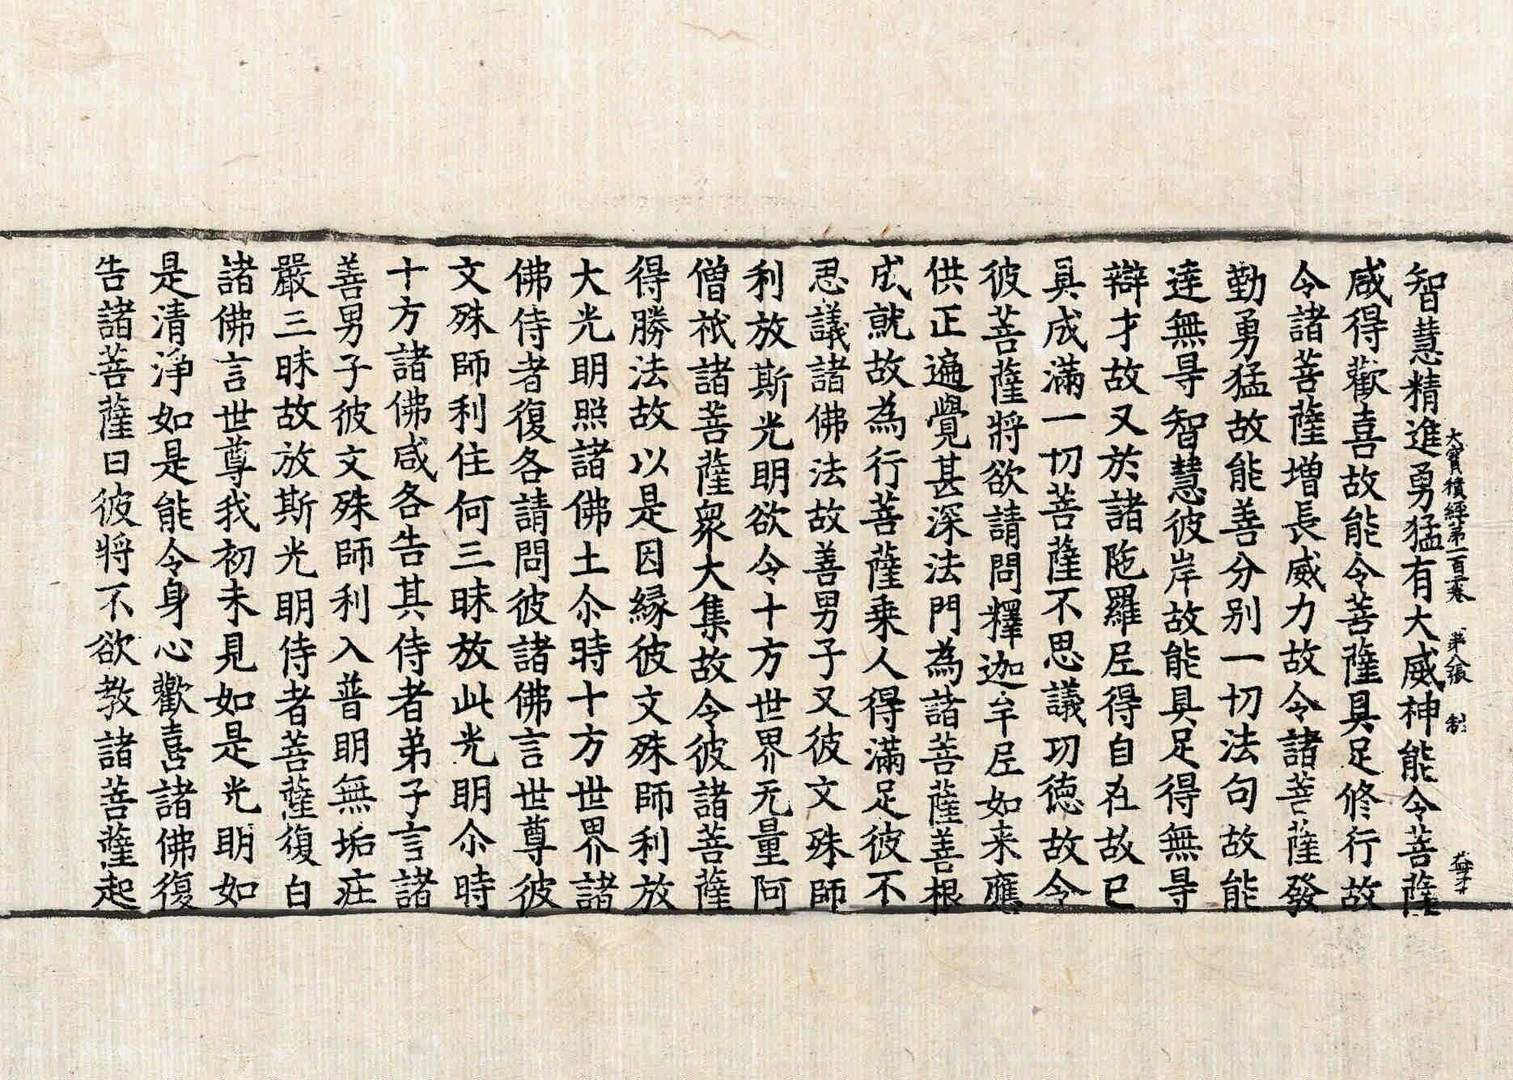 智慧精進勇猛有大威神能令菩薩
大寶積經第一百三卷　第八張　制
咸得歡喜故能令菩薩具足修行故
令諸菩薩增長威力故令諸菩薩發
勤勇猛故能善分别一切法句故能
達無㝵智慧彼岸故能具足得無㝵
辯才故又於諸陁羅𡰱得自在故已
具成滿一切菩薩不思議功德故令
彼菩薩將欲請問釋迦牟𡰱如来應
供正遍覺甚深法門為諸菩薩善根
成就故為行菩薩乗人得滿足彼不
思議諸佛法故善男子又彼文殊師
利放斯光明欲令十方世界无量阿
僧祇諸菩薩衆大集故令彼諸菩薩
得勝法故以是因縁彼文殊師利放
大光明照諸佛土尒時十方世界諸
佛侍者復各請問彼諸佛言世尊彼
文殊師利住何三昧放此光明尒時
十方諸佛咸各告其侍者弟子言諸
善男子彼文殊師利入普明無垢莊
嚴三昧故放斯光明侍者菩薩復白
諸佛言世尊我初未見如是光明如
是清淨如是能令身心歡喜諸佛復
告諸菩薩曰彼將不欲教諸菩薩起